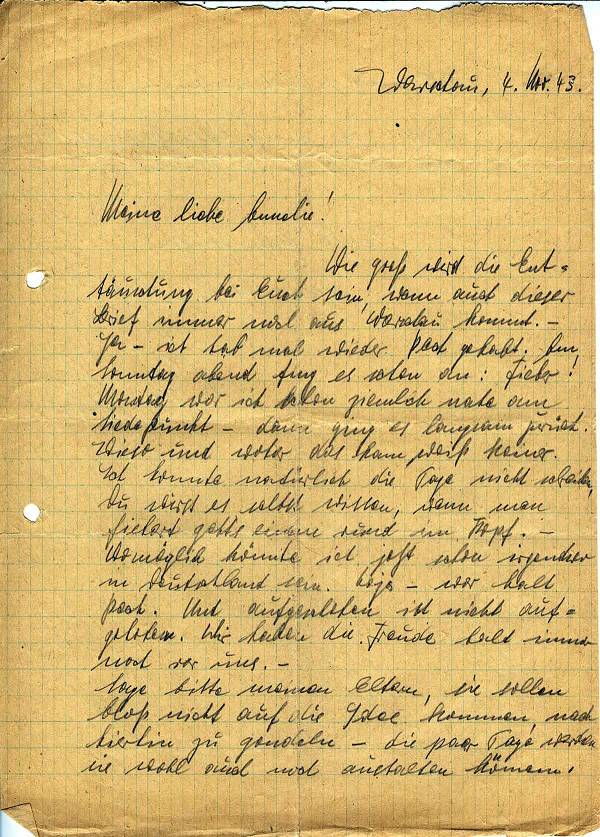 Warschau, 4. Nov. 43.
Meine liebe Annelie!
Wie groß wird die Ent=
täuschung bei Euch sein, wenn auch dieser
Brief immer noch aus Warschau kommt. –
Ja – ich hab mal wieder Pech gehabt. Am
Sonntag abend fing es schon an: Fieber!
Montag war ich schon ziemlich nahe am
Siedepunkt – dann ging es langsam zurück.
Wieso und woher das kam weiß keiner.
Ich konnte natürlich die Tage nicht schreiben,
Du wirst es selbst wissen, wenn man
fiebert gehts einem rund im Kopf. –
Womöglich könnte ich jetzt schon irgendwo
in Deutschland sein. Naja – war halt
Pech. Und aufgeschoben ist nicht auf=
gehoben. Wir haben die Freude halt immer
noch vor uns. –
Sage bitte meinen Eltern, sie sollen
bloß nicht auf die Idee kommen, nach
hierhin zu gondeln – die paar Tage werden
sie wohl auch noch aushalten können.